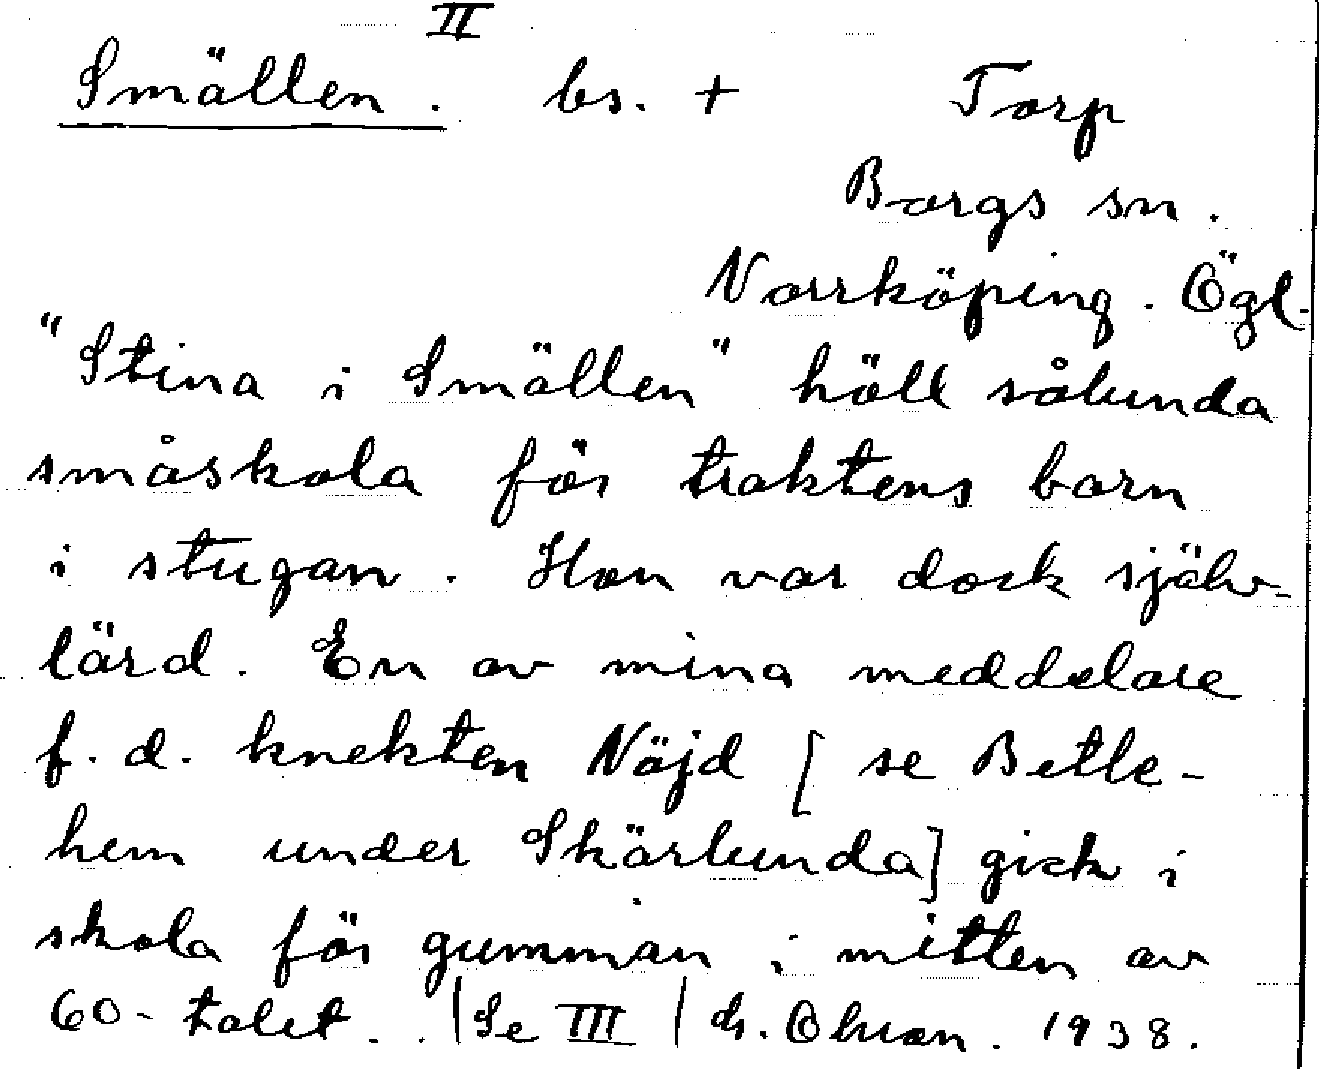 II
Smällen. bs. + Torp
Borgs sn.
Norrköping. Ögl.
"Stina i Smällen" höll sålunda
småskola för traktens barn
i stugan. Hon var dock själv-
lärd. En av mina meddelare
f. d. knekten Nöjd [se Betle-
hem under Skärlunda] gick i
skola för gumman i mitten av
60-talet. . |Se III| 1938.